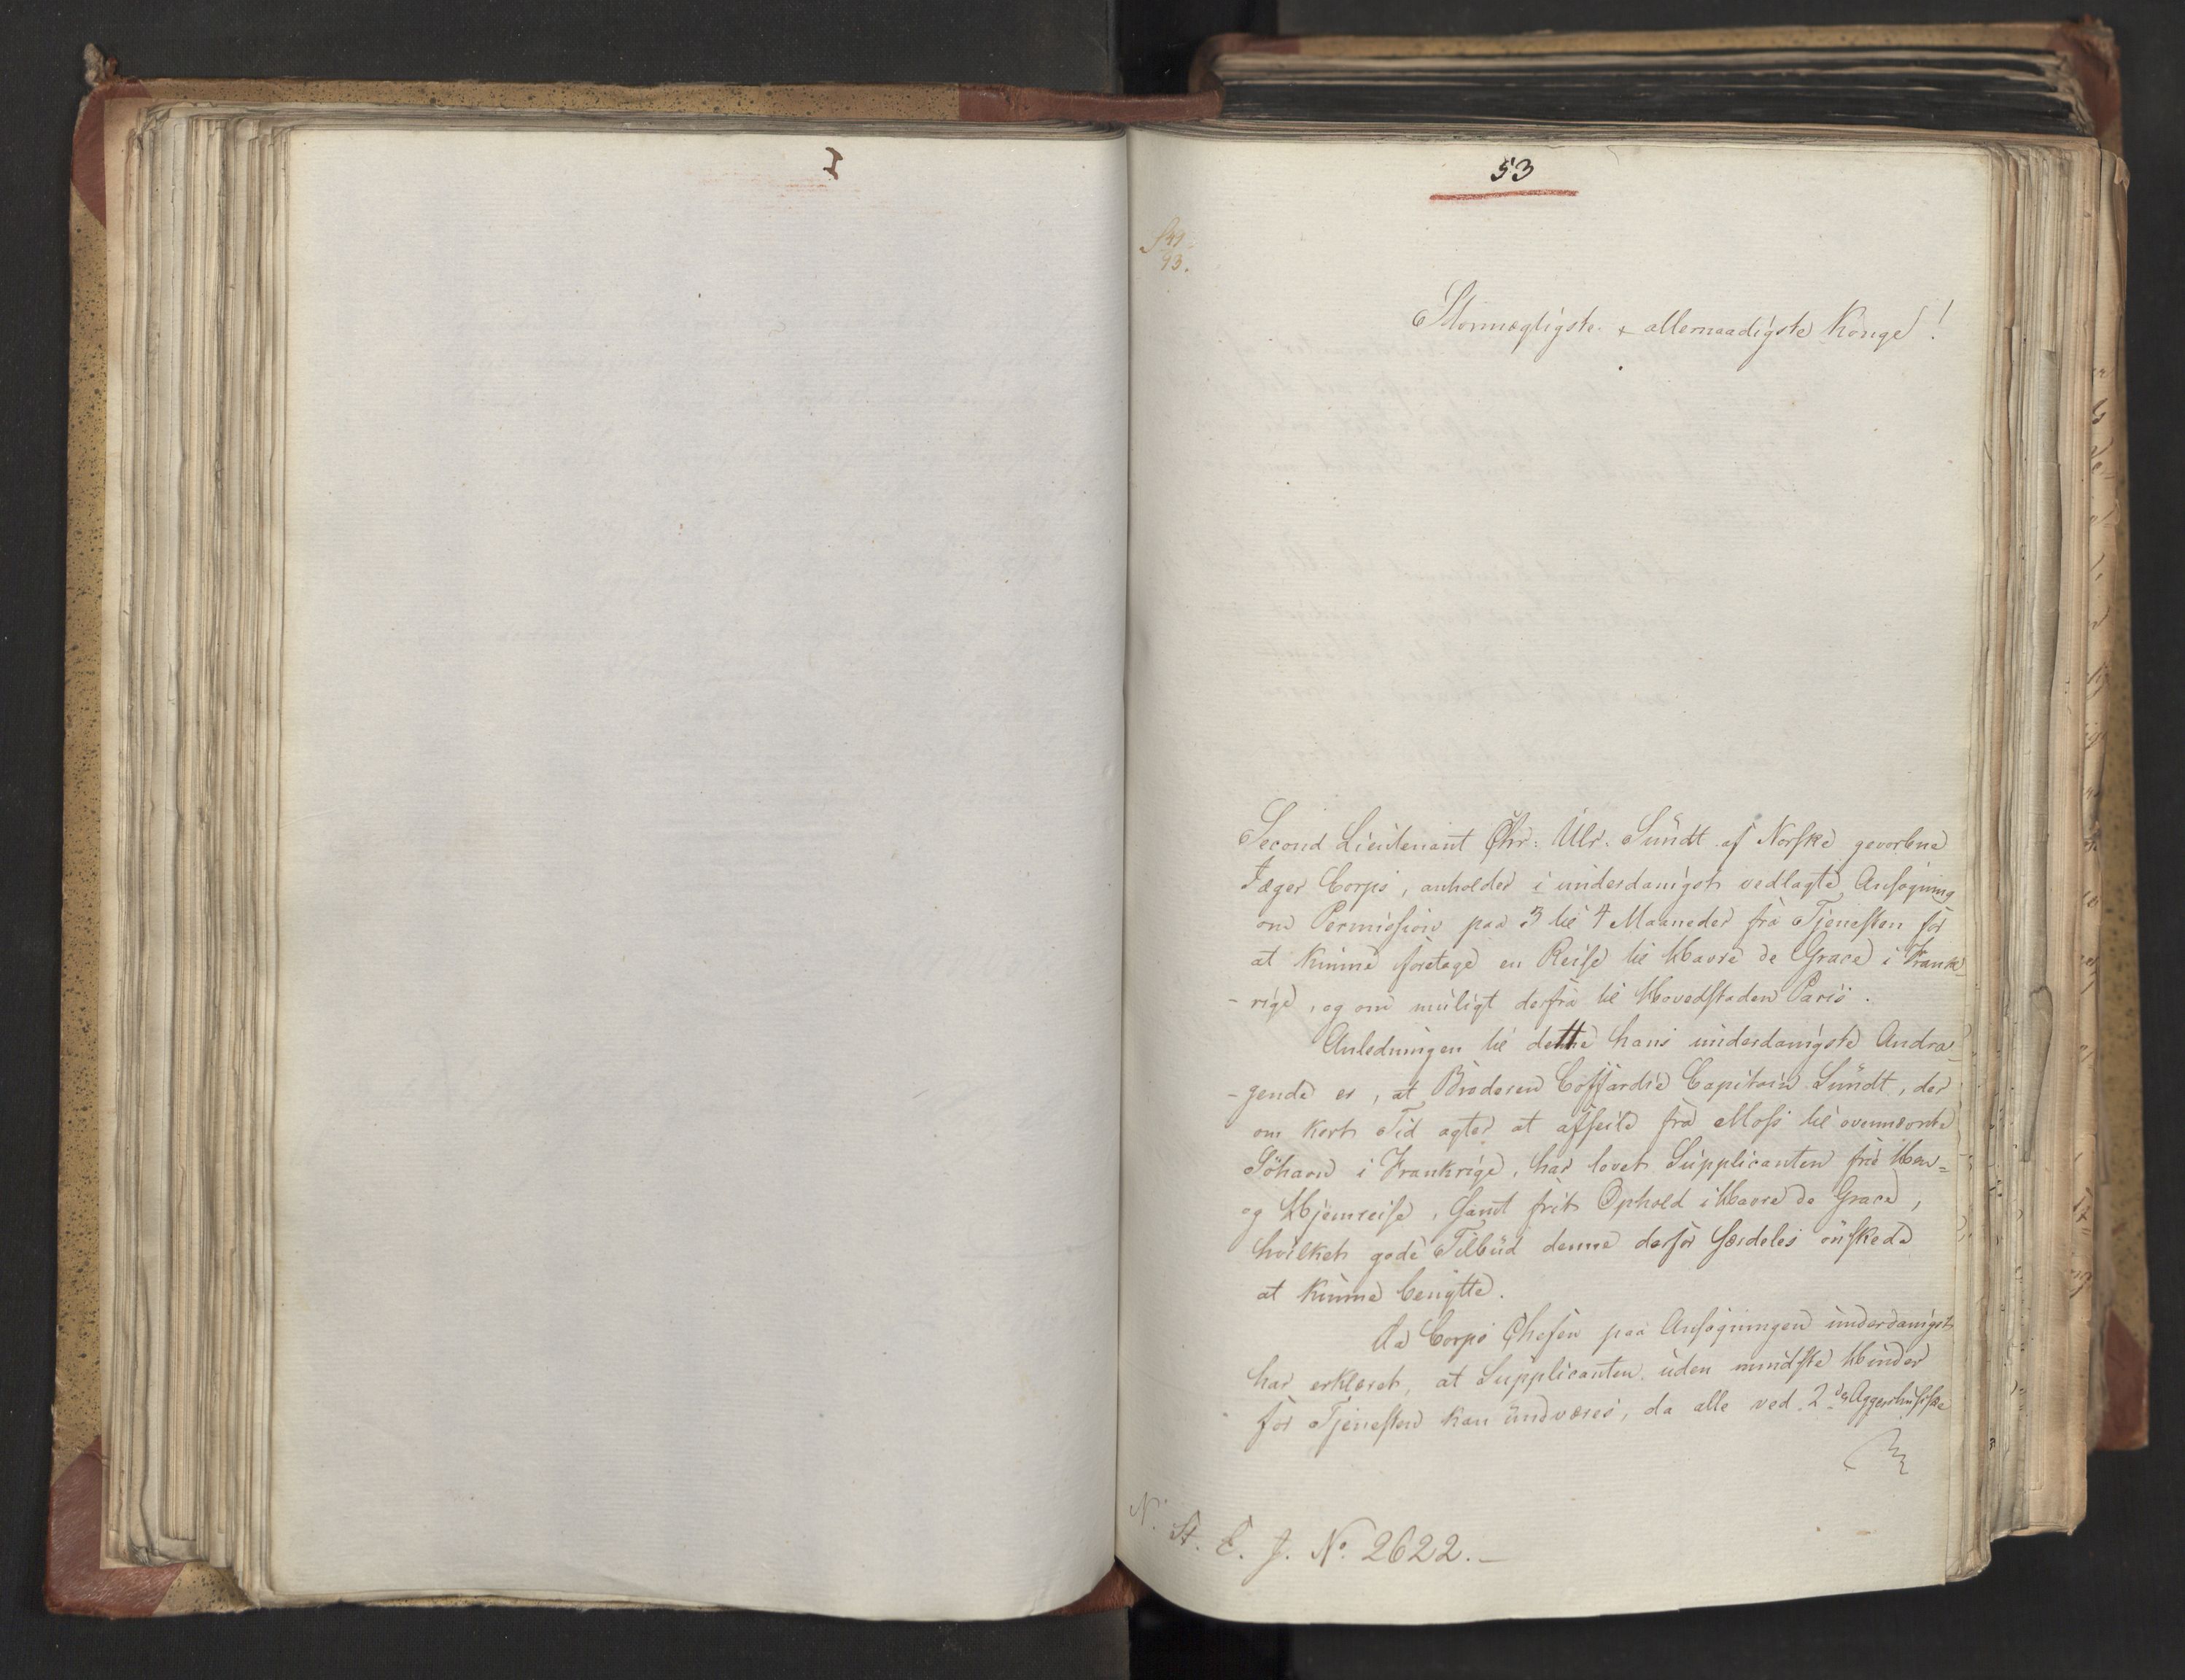 53
Stormægtigste & allernaadigste Konge!
Second Lieutenant Chr: Ulr. Sundt af Norske gevorbne
Jæger Corps, anholder i underdanigst vedlagte Ansøgning
om Permission paa 3 til 4 Maaneder fra Tjenesten for
at kunne foretage en Reise til Havre de Grace i Frank-
-rige, og om muligt derfra til Hovedstaden Paris.
Anledningen til dette hans underdanigste Andra-
-gende er, at Broderen Coffardie Capitain Sundt, der
om kort Tid agter at afseile fra Moss til ovennævnte
Søhavn i Frankrige, har lovet Supplicanten frie Hen-
og Hjemreise, samt frit Ophold i Havre de Grace,
hvilket gode Tilbud denne derfor særdeles önskede
at kunne benytte.
Da Corps Chefen paa Ansøgningen underdanigst
har erklæret, at Supplicanten uden mindste Hinder
for Tjenesten kan undværes, da alle ved 2de Aggershusiske
N. St. E. J. No. 2622.-